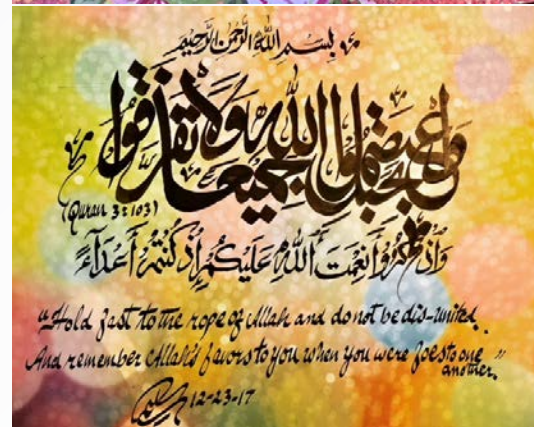 بسم الله الرحمن الرحيم
واعتصموا بحبل الله جميعا ولا تفرقوا
(Quran 3:103)
وَاذْكُرُوا نِعْمَتَ اللهِ عَلَيْكُمْ إِذْ كُنْتُمْ أَعْدَآءً
"Hold fast to the rope of Allah and do not be dis-united.
And remember Allah's favors to you when you were foes to one
another."
12-23-17